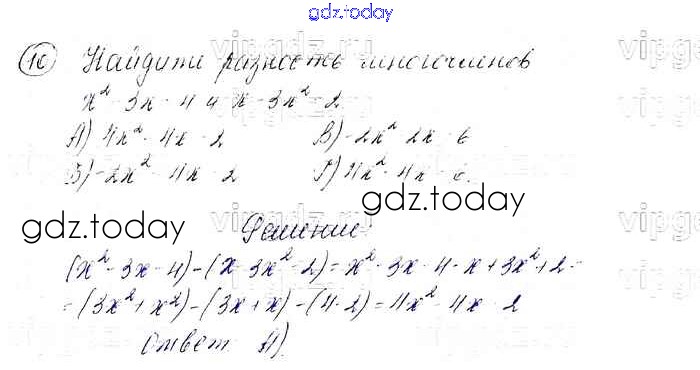 gdz.today
10 Найдите разность многочленов
x² - 3x - 4 и x - 3x² - 2
А) 4x² - 4x - 2 В) -2x² - 2x - 6
Б) -2x² - 4x - 2 Г) 4x² - 4x - 6
gdz.today gdz.today
Решение
(x² - 3x - 4) - (x - 3x² - 2) = x² - 3x - 4 - x + 3x² + 2 =
= (3x² + x²) - (3x + x) - (4 - 2) = 4x² - 4x - 2
Ответ А).